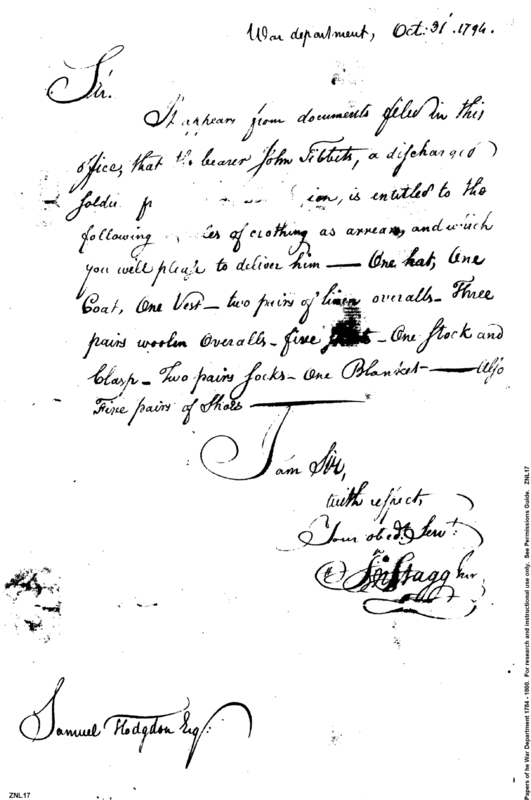 War department, Oct: 31. 1794.
Sir.
It appears from documents filed in this
office, that the bearer John Tibbets, a discharged
soldier is entitled to the
following of clothing as arrears, and which
you will please to deliver him — One hat, One
Coat, One Vest – two pairs of linen overalls – Three
pairs woolen Overalls – five – One Stock and
Clasp – Two pairs socks – One Blanket — Also
Five pairs of Shoes —
I am Sir,
with respect,
Your obedt. Servt.
Jno Stagg Junr.
Samuel Hodgdon Esq:
ZNL17
Papers of he War Department 1784 - 1800. For research and instructional use only. See Permissions Guide. ZNL17